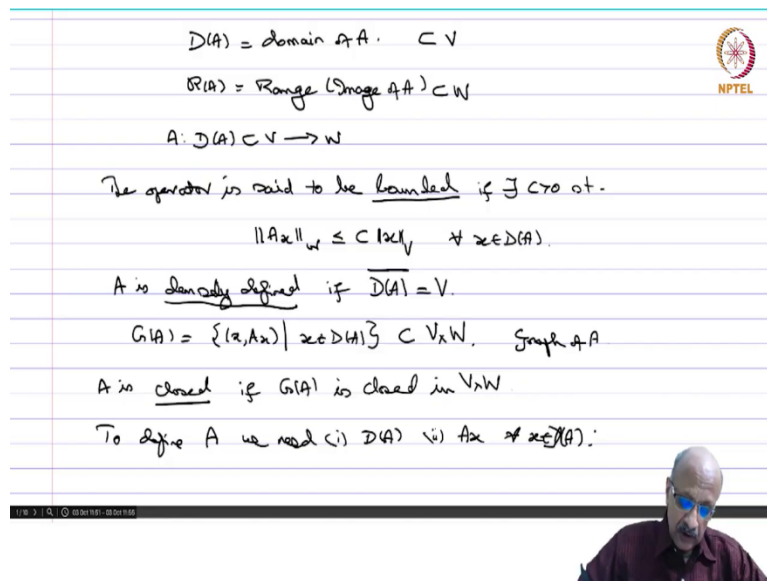 D(A) = domain of A. ⊂ V
R(A) = Range (Image of A) ⊂ W
A: D(A) ⊂ V → W
NPTEL
The operator is said to be bounded if ∃ C>0 st.
‖Ax‖_W ≤ C ‖x‖_V ∀ x∈D(A).
A is densely defined if \overline{D(A)} = V.
G(A) = {(x,Ax) | x∈D(A)} ⊂ V×W. Graph of A
A is closed if G(A) is closed in V×W
To define A we need (i) D(A) (ii) Ax ∀ x∈D(A).
1/10
03 Oct 11:51 - 03 Oct 11:55